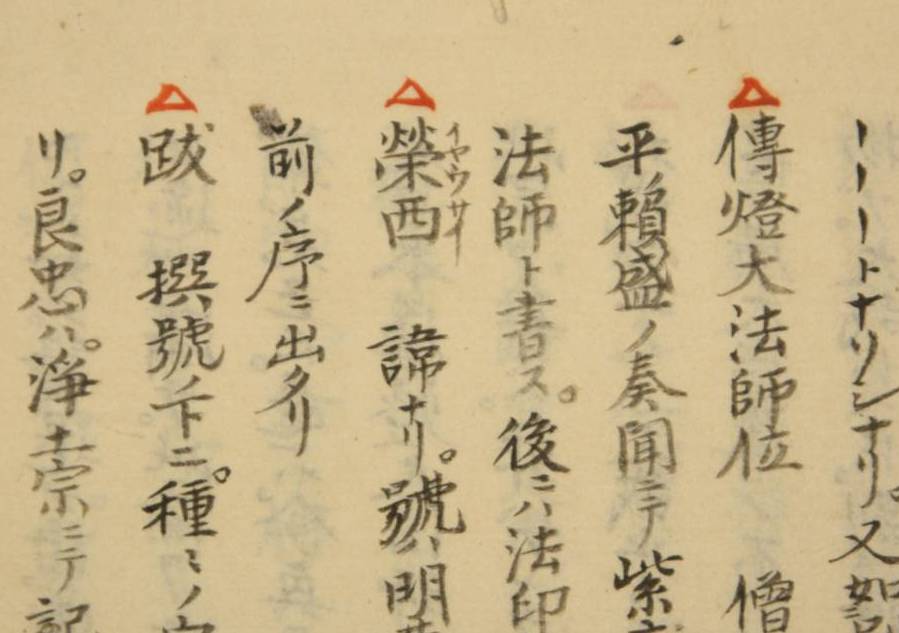 ーーートナリシナリ。又如
△傳燈大法師位 僧
平ノ賴盛ノ奏聞ニテ紫
法師ト書ス。後ニハ法印
△榮西イヤウサイ 諱ナリ。號ハ明
前ノ序ニ出タリ
△跋 撰號ノ下ニ。種〻ノ
リ。良忠ハ。淨土宗ニテ記